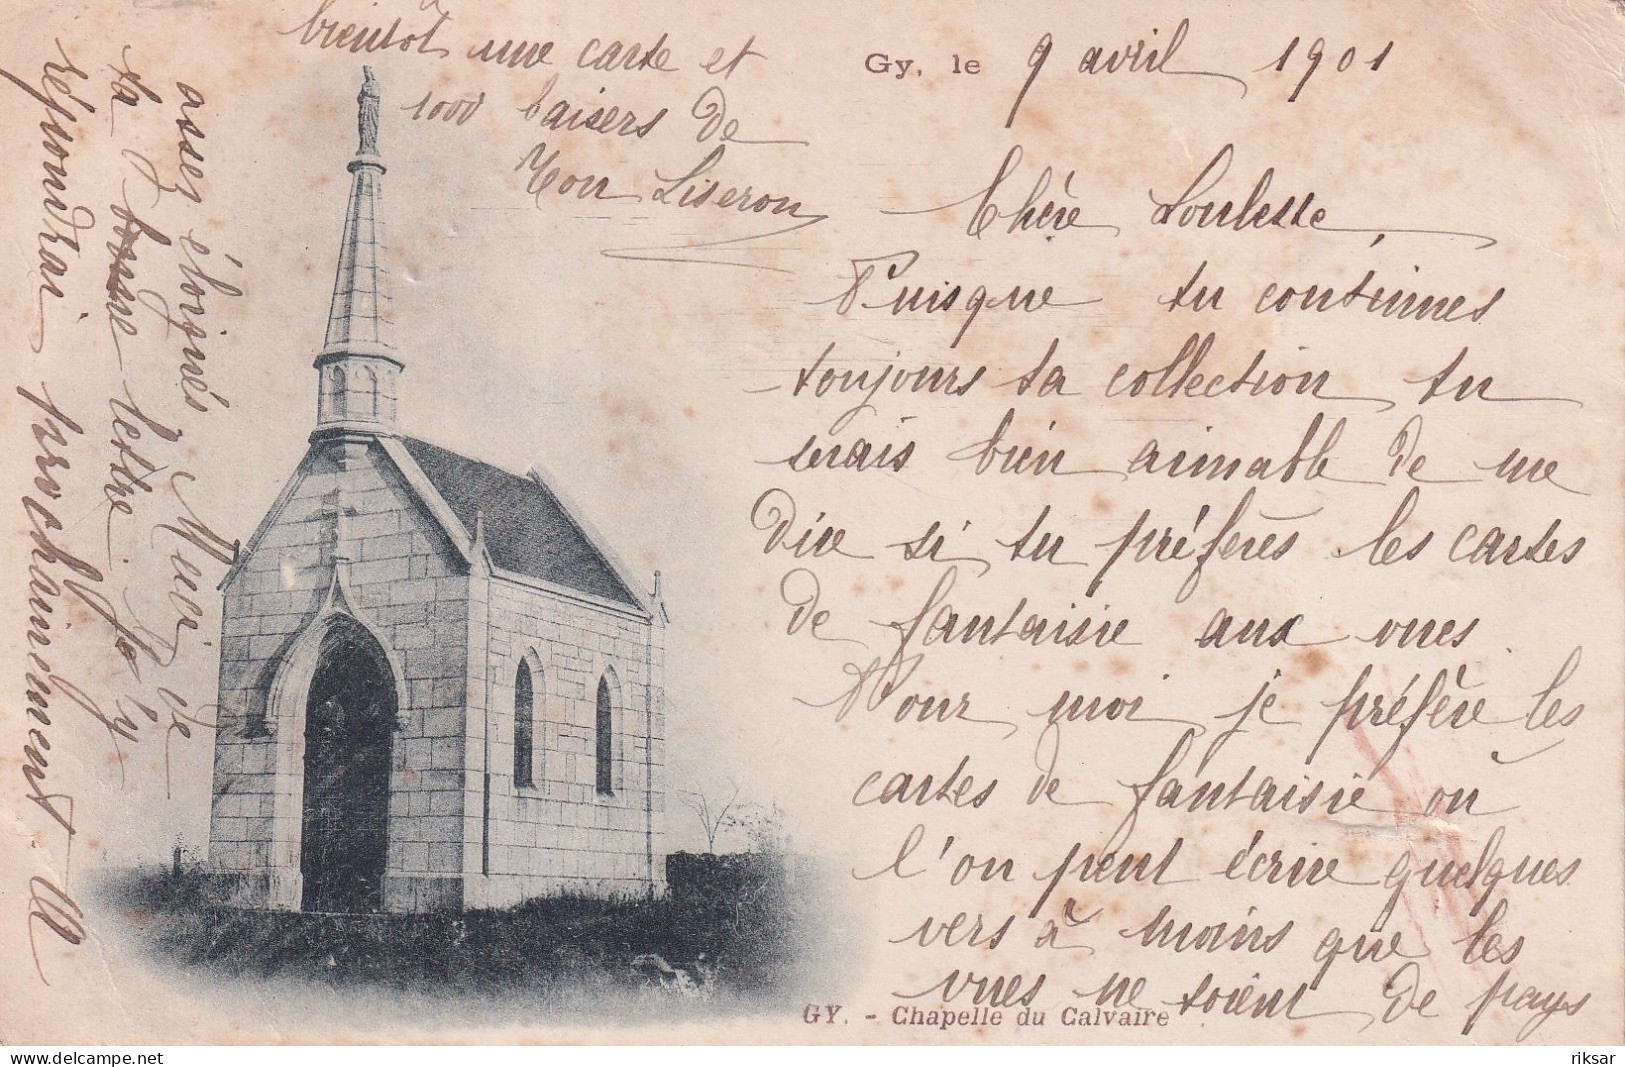 Gy, le 9 avril 1901
Chère Loulette,
Puisque tu continues
toujours ta collection, tu
serais bien aimable de me
dire si tu préfères les cartes
de fantaisie aux vues.
Pour moi je préfère les
cartes de fantaisie où
l'on peut écrire quelques
vers à moins que les
vues ne soient de pays
assez éloignés. Merci de
ta bonne lettre. J'y
répondrai prochainement. A
bientôt une carte et
1000 baisers de
Ton Liseron
GY. - Chapelle du Calvaire
riksar